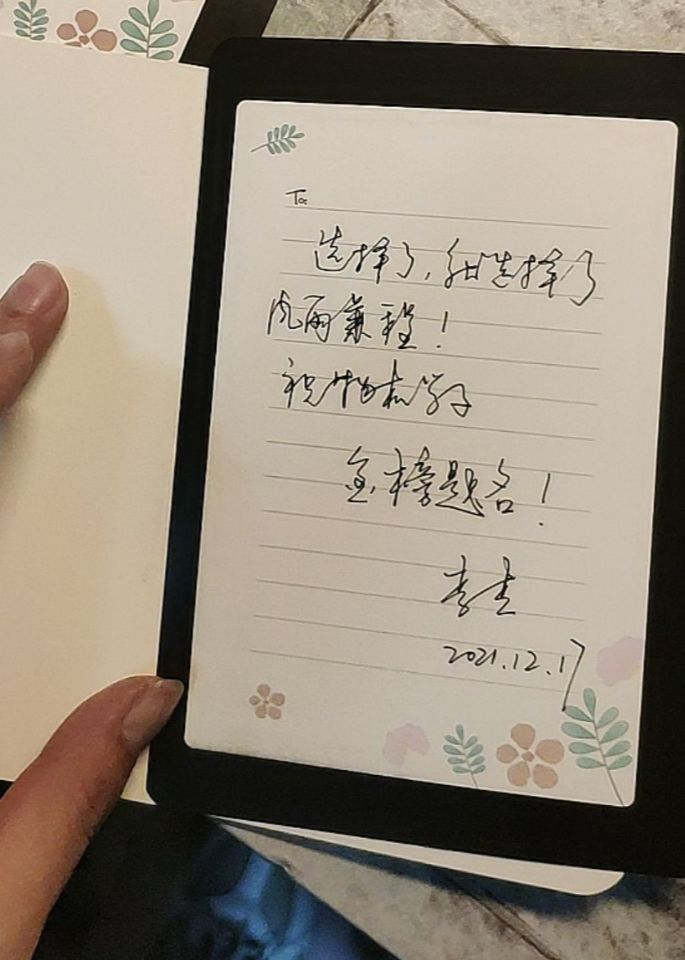 To:
选择了,就选择了
风雨兼程!
祝物和学子
金榜题名!
李圭
2021.12.17